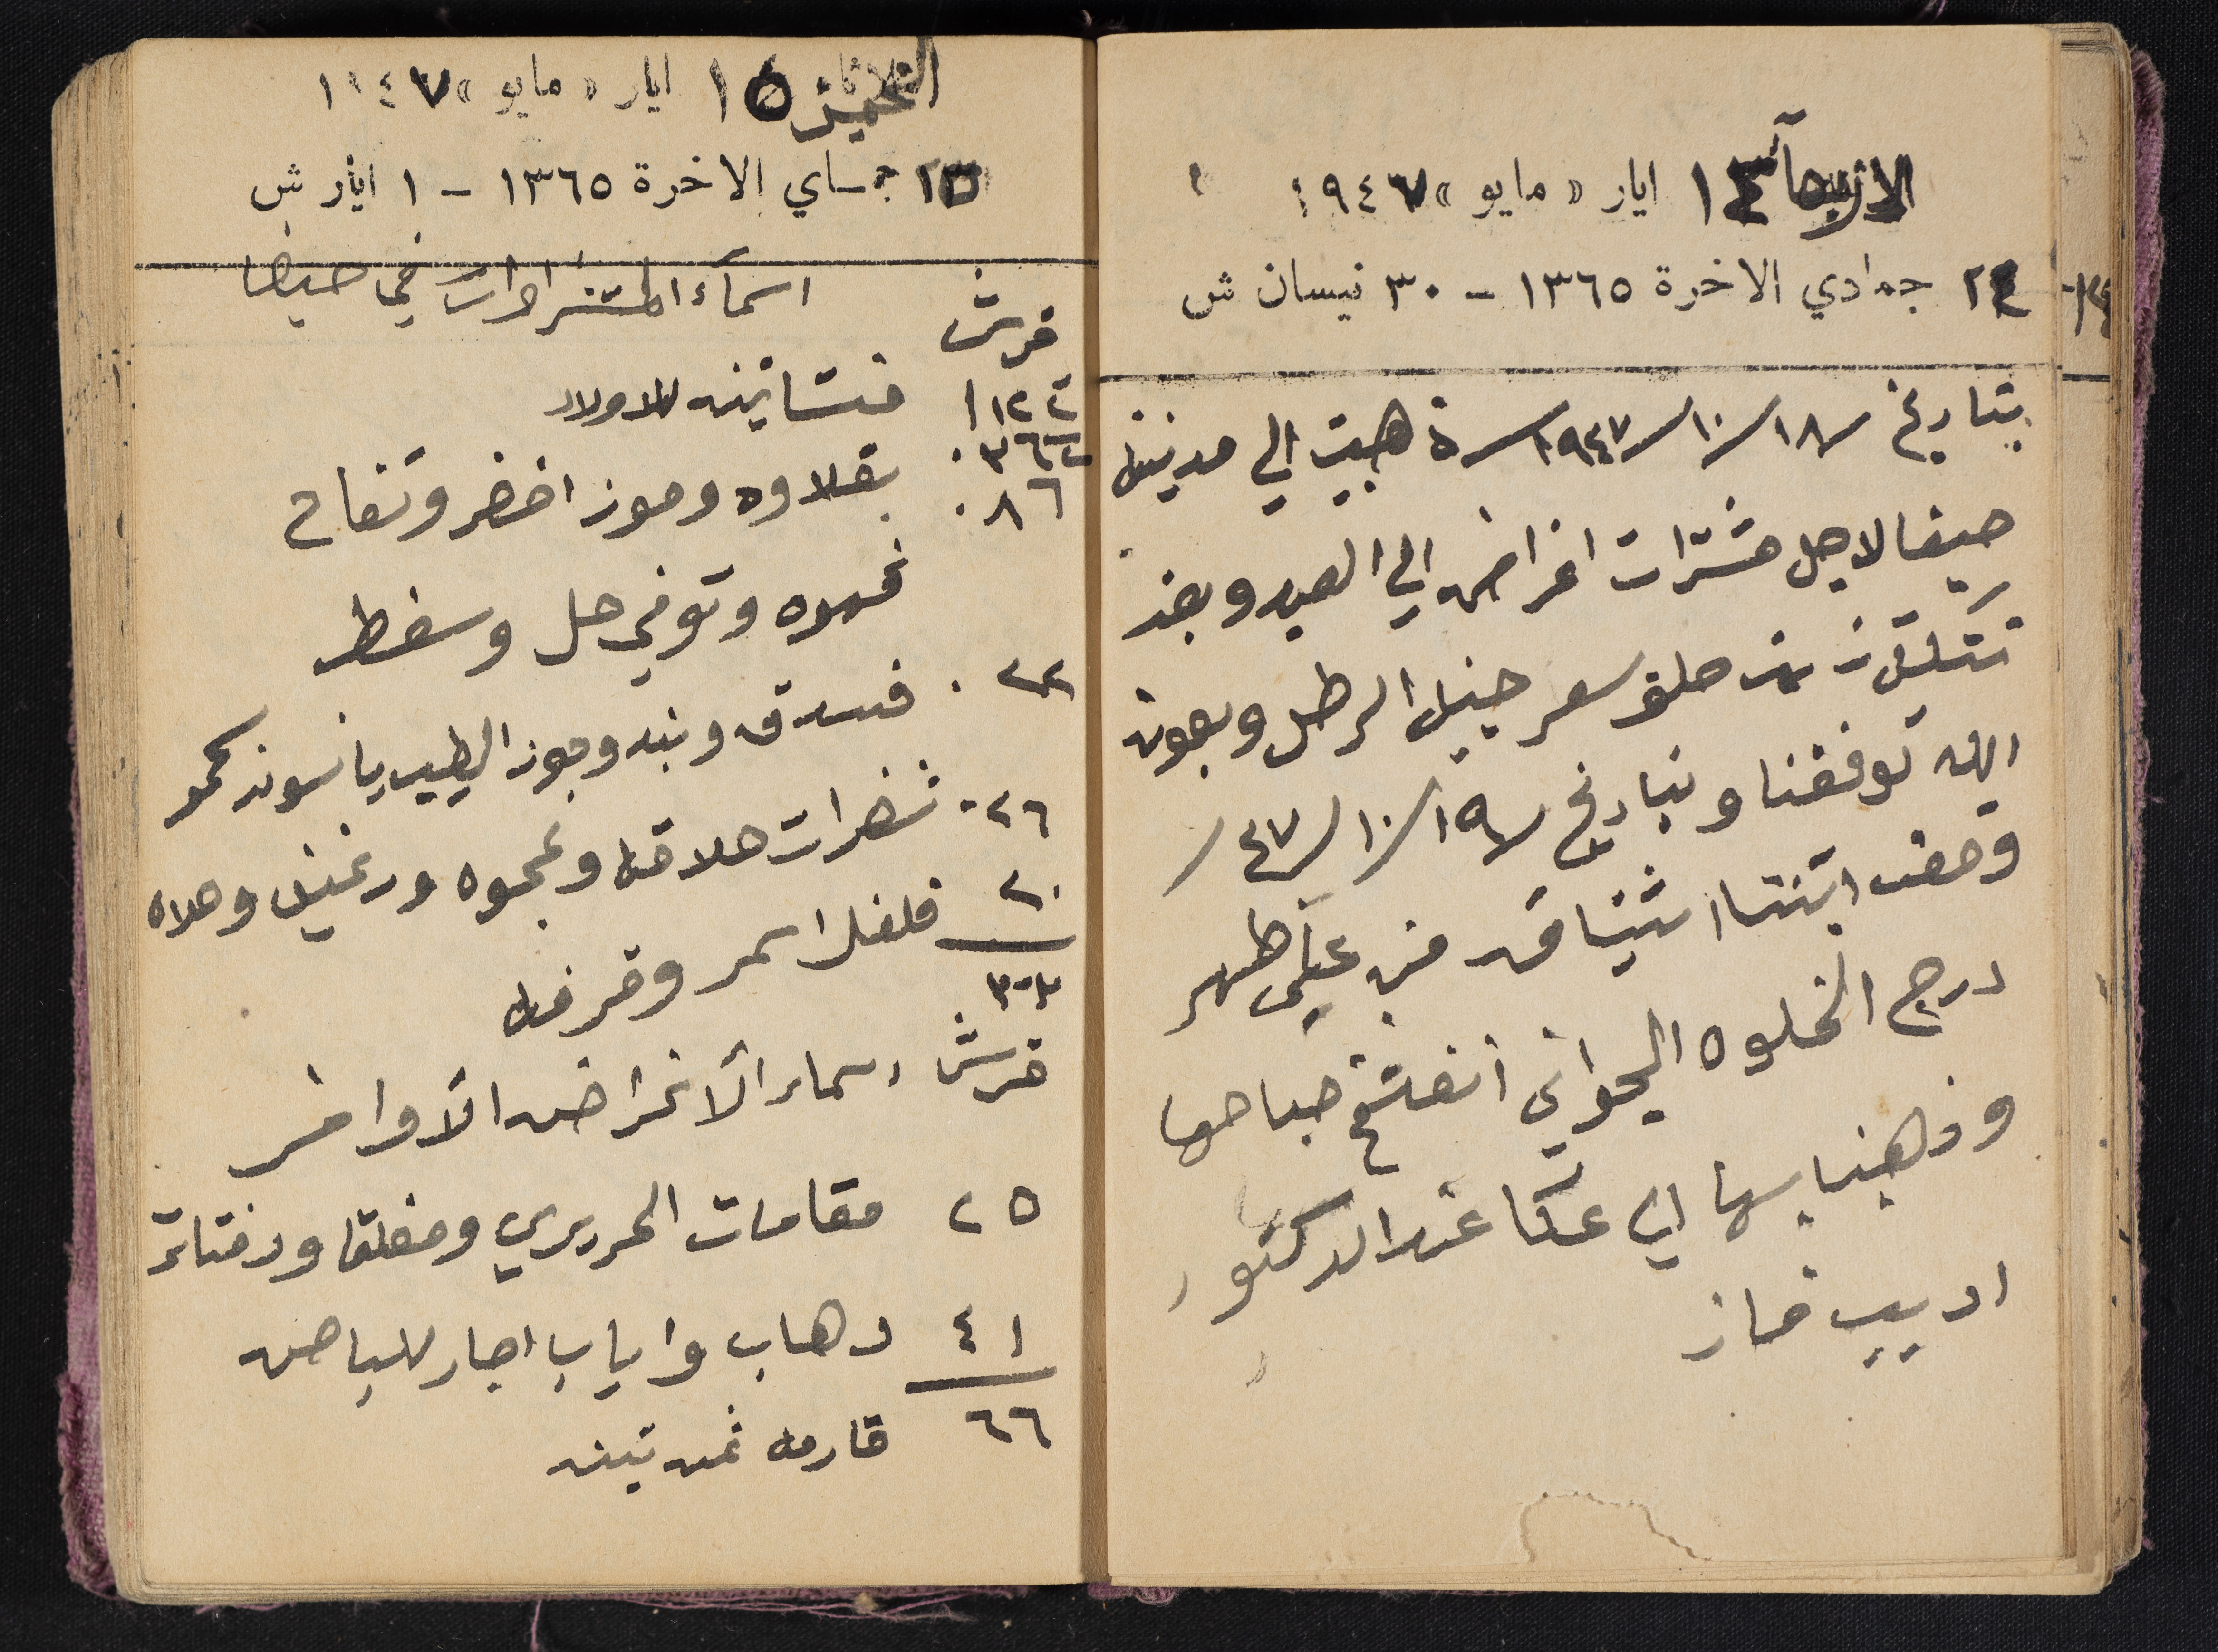 الاربعآء ١٤ ايار « مايو » ١٩٤٧
٢٤ جمادي الاخرة ١٣٦٥ - ٣٠ نيسان ش
بتاريخ ١٨/١٠/١٩٤٧ ذهبت الي مدينة
حيفا لاجل مشترات اغراض الي العيد وبعد
سعر جنيه الرطل وبعون
الله توفقنا وبتاريخ ١٩/١٠/٤٧
وقعت ابنتنا من على ظهر
درج الخلوه الجواني انفشخ
وذهبنا بها الى عكا عند الدكتور
اديب
الخميس ١٥ ايار « مايو » ١٩٤٧
جمادي الاخرة ١٣٦٥ - ١ ايار ش
قرش اسمآء المشترات في حيفا
١١٢٢ فساتين للاولاد
٠٣٦٢
٠٨٦ بقلاوه وموز اخضر وتفاح
قهوه وتوفي حل وسفط
٠٢٢ فسدق وبندوجوز الطيب يانسون كمو
٠٢٦ شفرات حلاقه وعجوه ورنجبيل وهلاه
٢٠ فلفل اسمر وقرفه
قرش اسماء الاغراض الاواخر
٢٥ مقامات الحريري ومغلقا ودفتاتر
٤١ دهاب واياب اجار للباص
٦٦ قارمه ثمن تبن